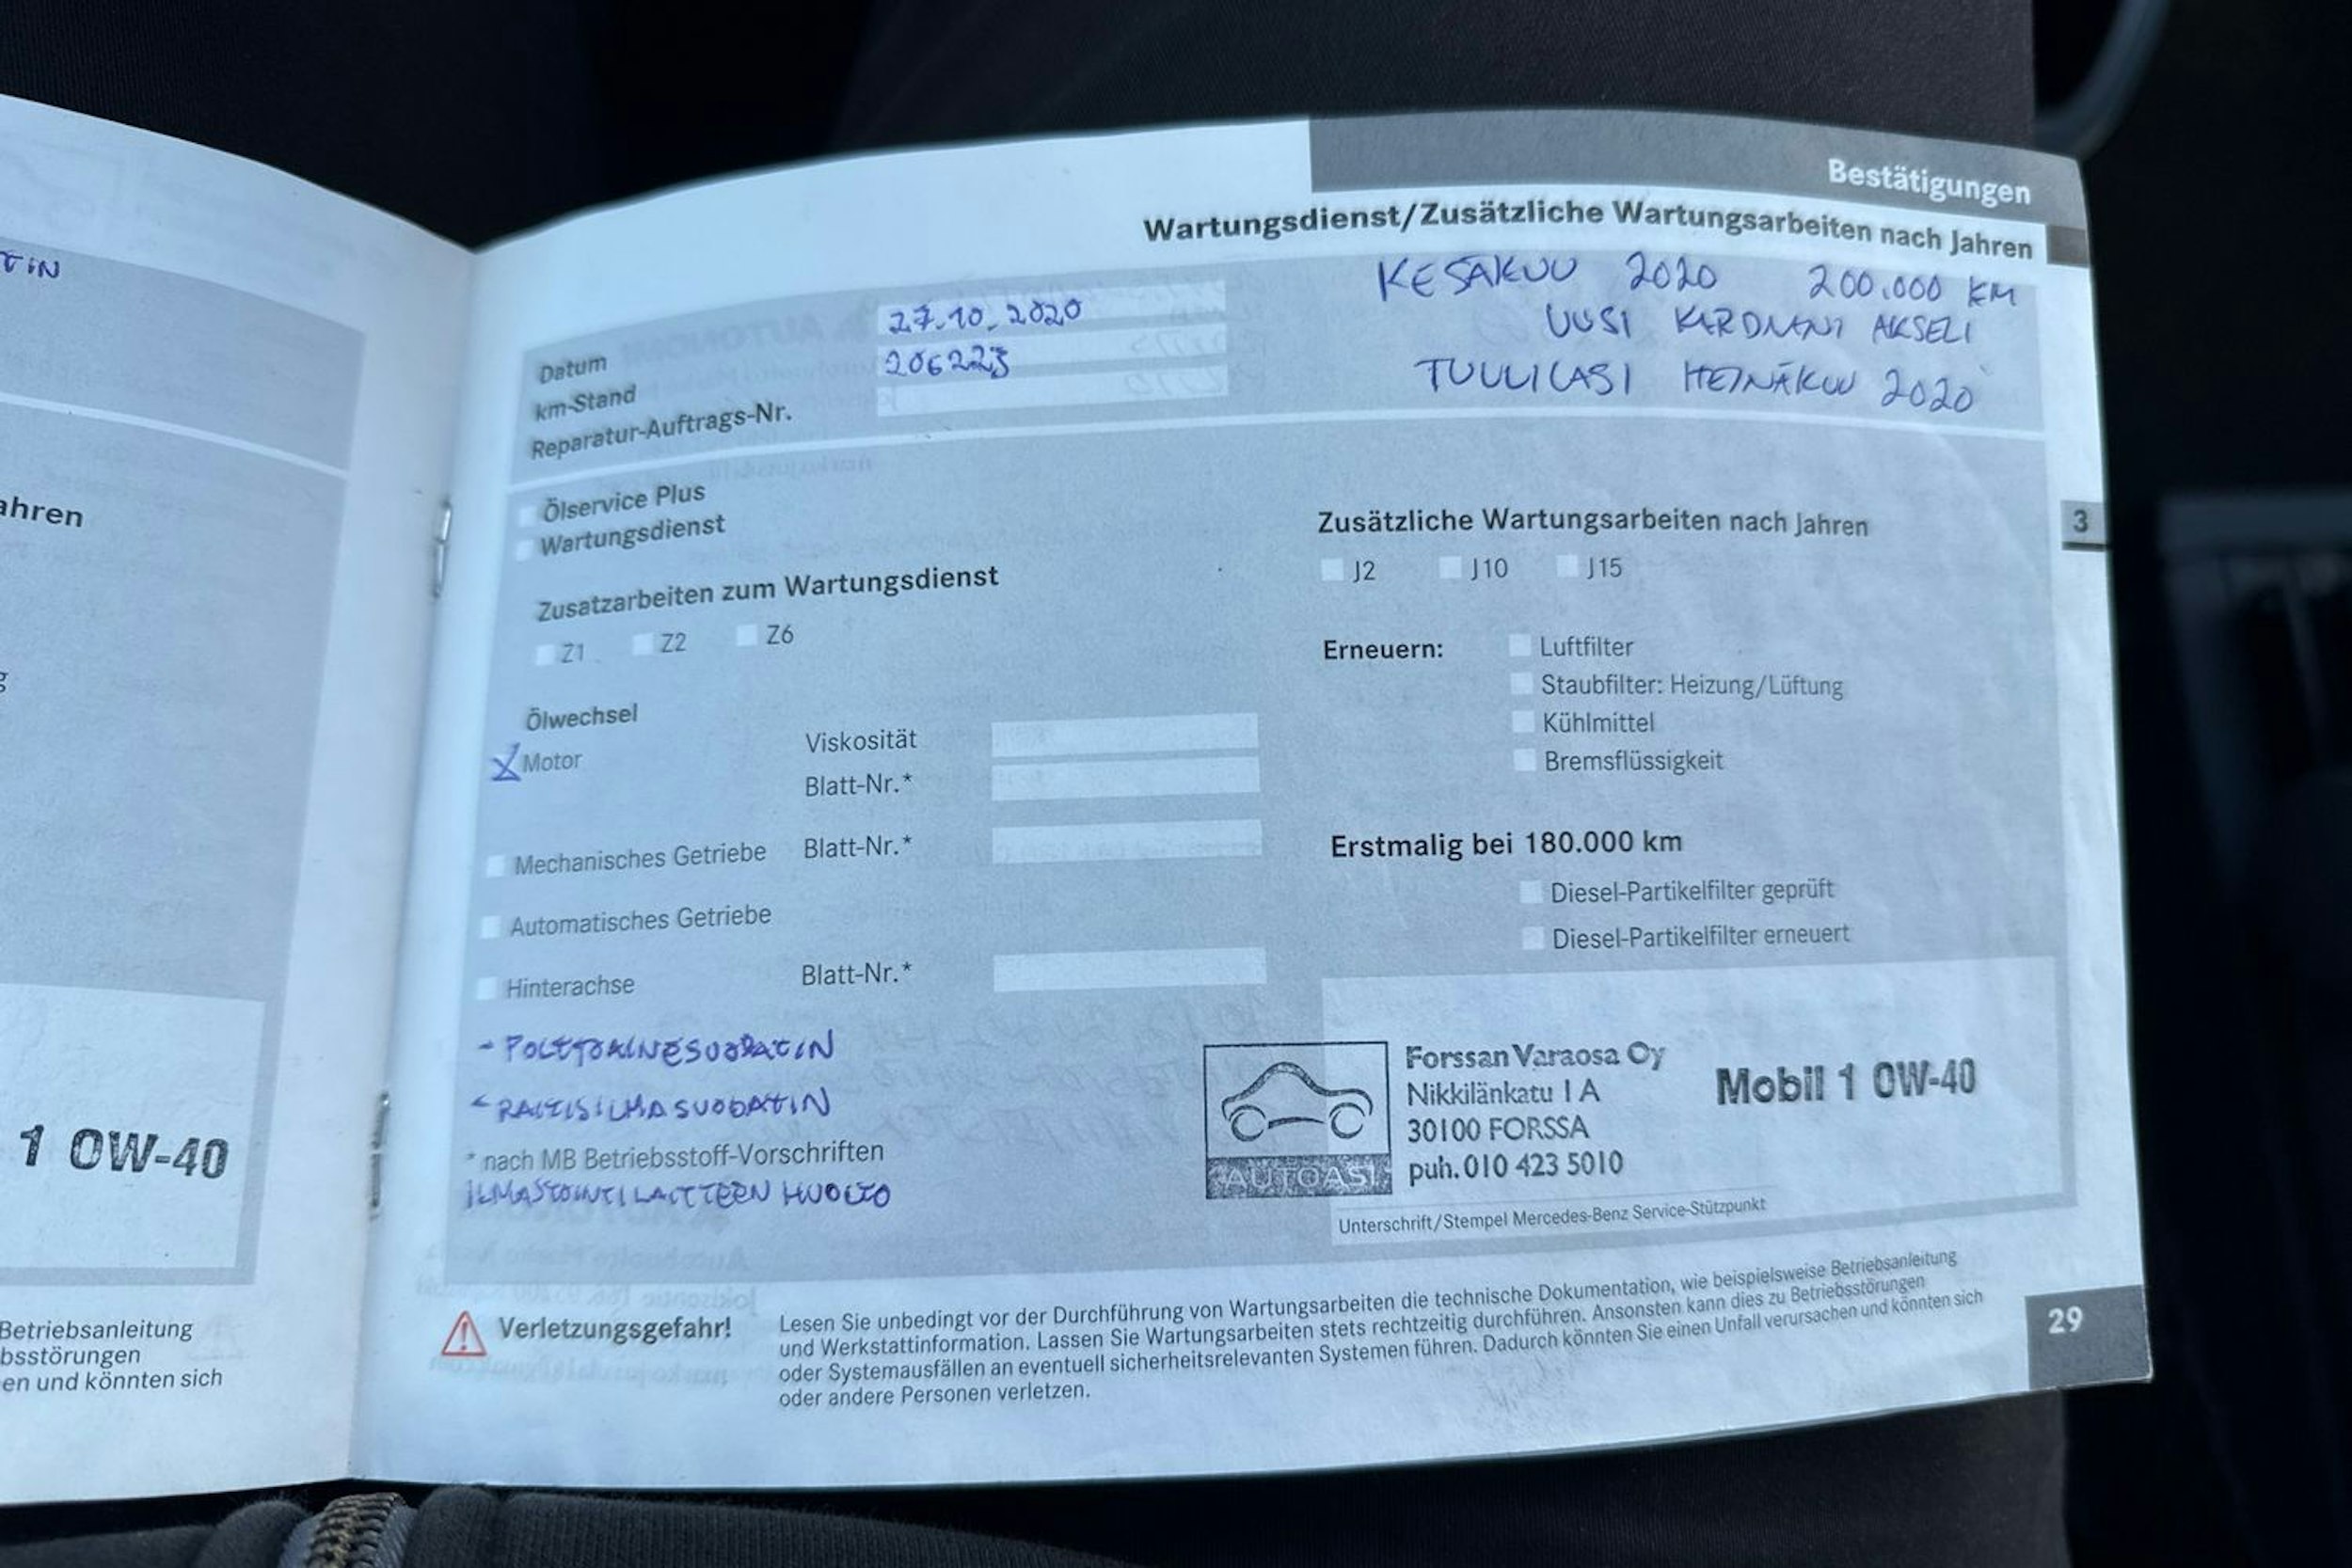 TIN
ahren
1 0W-40
Betriebsanleitung
bsstörungen
en und könnten sich
Bestätigungen
Wartungsdienst/Zusätzliche Wartungsarbeiten nach Jahren
KESÄKUU 2020 200.000 KM
UUSI KARDAANI AKSELI
TUULILASI HEINÄKUU 2020
Datum 27.10.2020
km-Stand 206223
Reparatur-Auftrags-Nr.
Ölservice Plus
Wartungsdienst
Zusatzarbeiten zum Wartungsdienst
Z1 Z2 Z6
Ölwechsel
X Motor
Viskosität
Blatt-Nr.*
Mechanisches Getriebe Blatt-Nr.*
Automatisches Getriebe
Hinterachse Blatt-Nr.*
- POLTTOAINESUODATIN
- RAITISILMASUODATIN
* nach MB Betriebsstoff-Vorschriften
ILMASTOINTILAITTEEN HUOLTO
Zusätzliche Wartungsarbeiten nach Jahren
J2 J10 J15
Erneuern: Luftfilter
Staubfilter: Heizung/Lüftung
Kühlmittel
Bremsflüssigkeit
Erstmalig bei 180.000 km
Diesel-Partikelfilter geprüft
Diesel-Partikelfilter erneuert
AUTOASI
Forssan Varaosa Oy
Nikkilänkatu 1 A
30100 FORSSA
puh. 010 423 5010
Mobil 1 0W-40
Unterschrift/Stempel Mercedes-Benz Service-Stützpunkt
3
Verletzungsgefahr!
Lesen Sie unbedingt vor der Durchführung von Wartungsarbeiten die technische Dokumentation, wie beispielsweise Betriebsanleitung
und Werkstattinformation. Lassen Sie Wartungsarbeiten stets rechtzeitig durchführen. Ansonsten kann dies zu Betriebsstörungen
oder Systemausfällen an eventuell sicherheitsrelevanten Systemen führen. Dadurch könnten Sie einen Unfall verursachen und könnten sich
oder andere Personen verletzen.
29